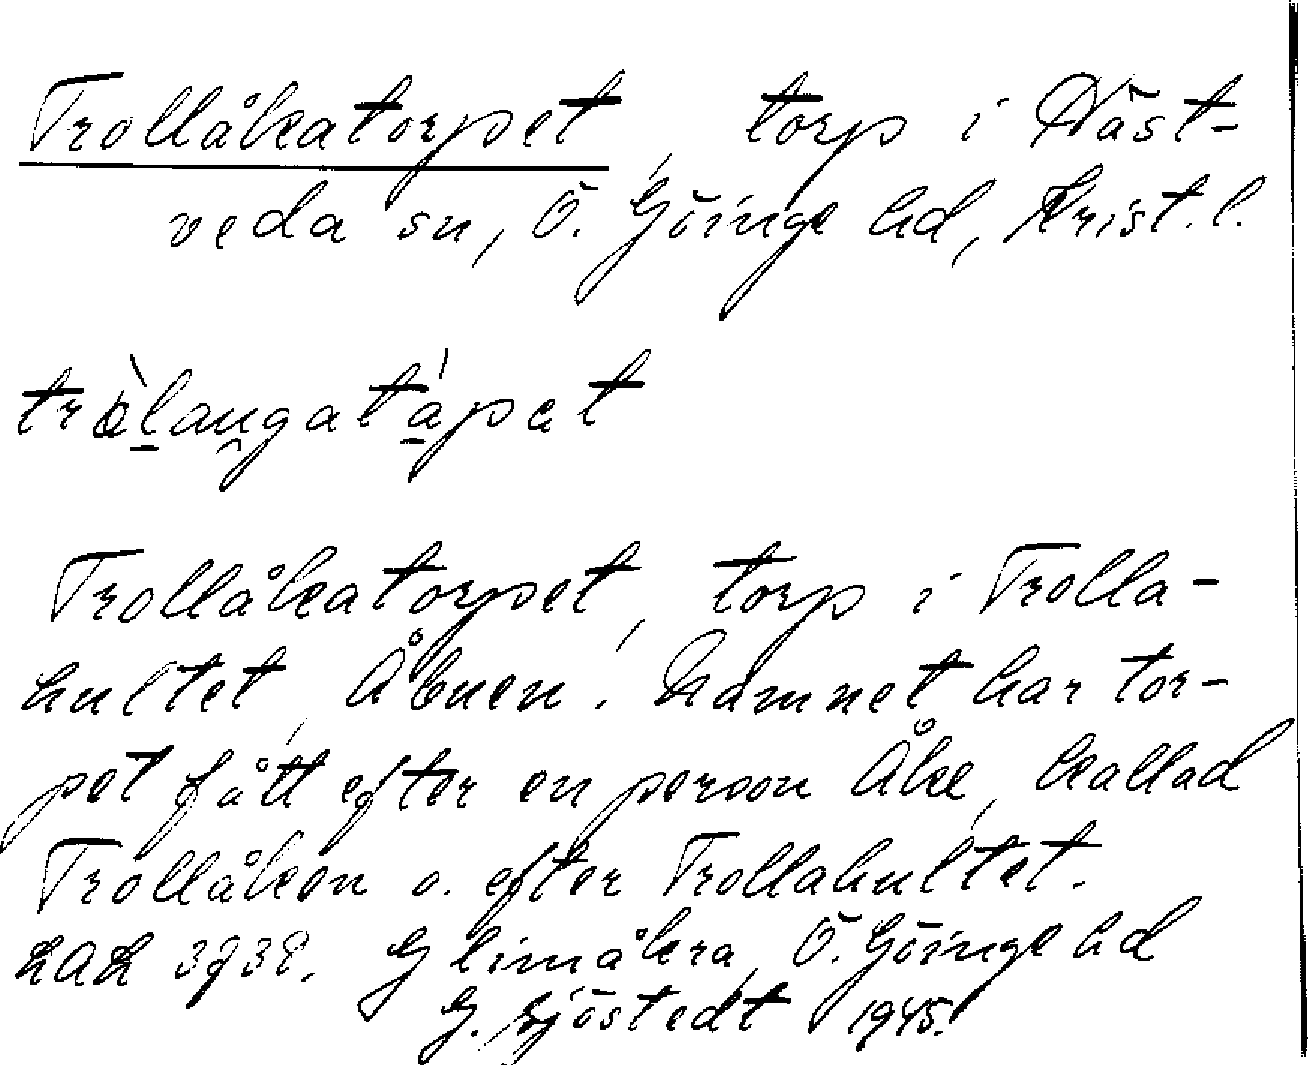 Trollåkatorpet, torp i Näst-
veda sn, Ö. Göinge hd, Krist. l.
Trollåkatorpet, torp i Trolla-
hultet, Åbuen. Namnet har tor-
pet fått efter en person Åke, kallad
Trollåken o. efter Trollahultet.
LAL Glimåkra, Ö. Göinge hd
G. Sjöstedt 1945.